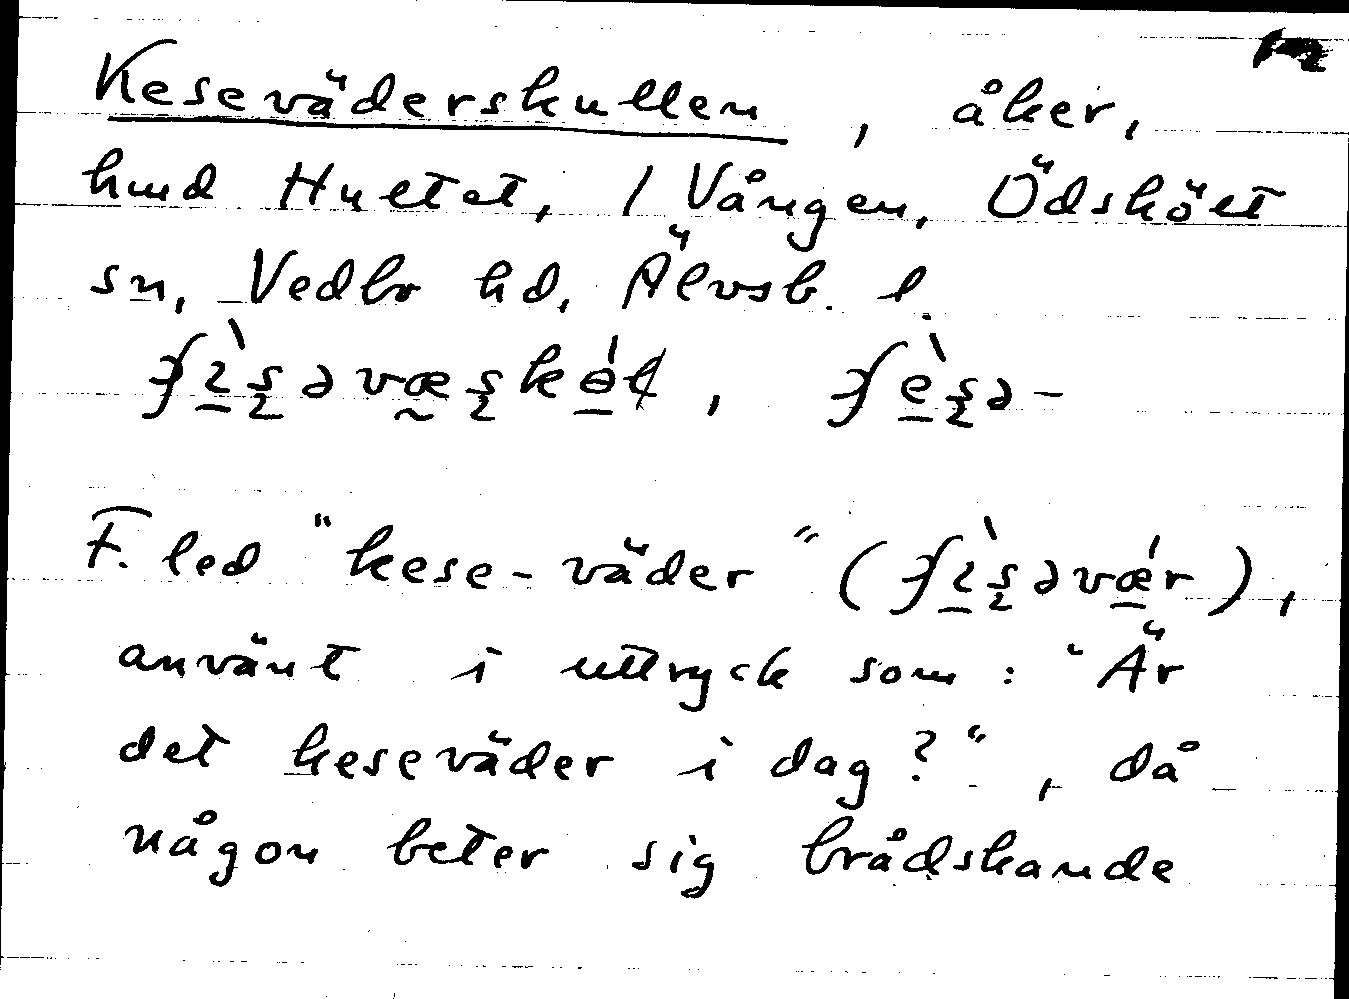 Keseväderskullen, åker,
hmd Hultet, 1 Vången, Ödskölt
sn, Vedbo hd, Älvsb. l.
F. led "kese-väder" (
använt i uttryck som: "Är
det keseväder i dag?", då
någon beter sig brådskande